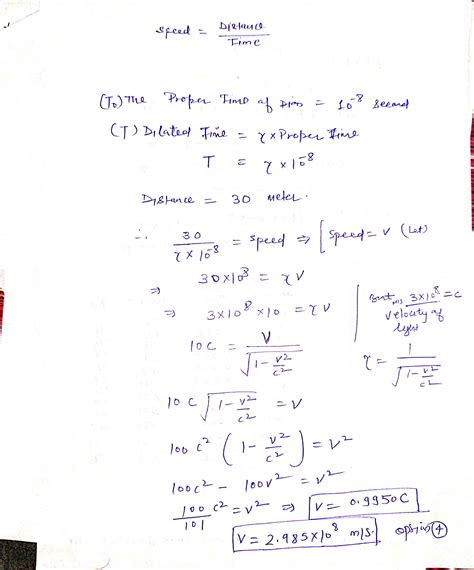 Speed = Distance / Time
(T₀) The Proper Time of Pions = 10⁻⁸ second
(T) Dilated Time = γ × Proper time
T = γ × 10⁻⁸
Distance = 30 meter.
∴ 30 / γ × 10⁻⁸ = speed ⇒ [speed = v (Let)
⇒ 30 × 10⁸ = γ v
⇒ 3 × 10⁸ × 10 = γ v
But 3 × 10⁸ = c
velocity of
light
10 c = v / √(1 − v²/c²)
γ = 1 / √(1 − v²/c²)
10 c √(1 − v²/c²) = v
100 c² (1 − v²/c²) = v²
100 c² − 100 v² = v²
100/101 c² = v² ⇒ v = 0.9950 c
v = 2.985 × 10⁸ m/s. option ④